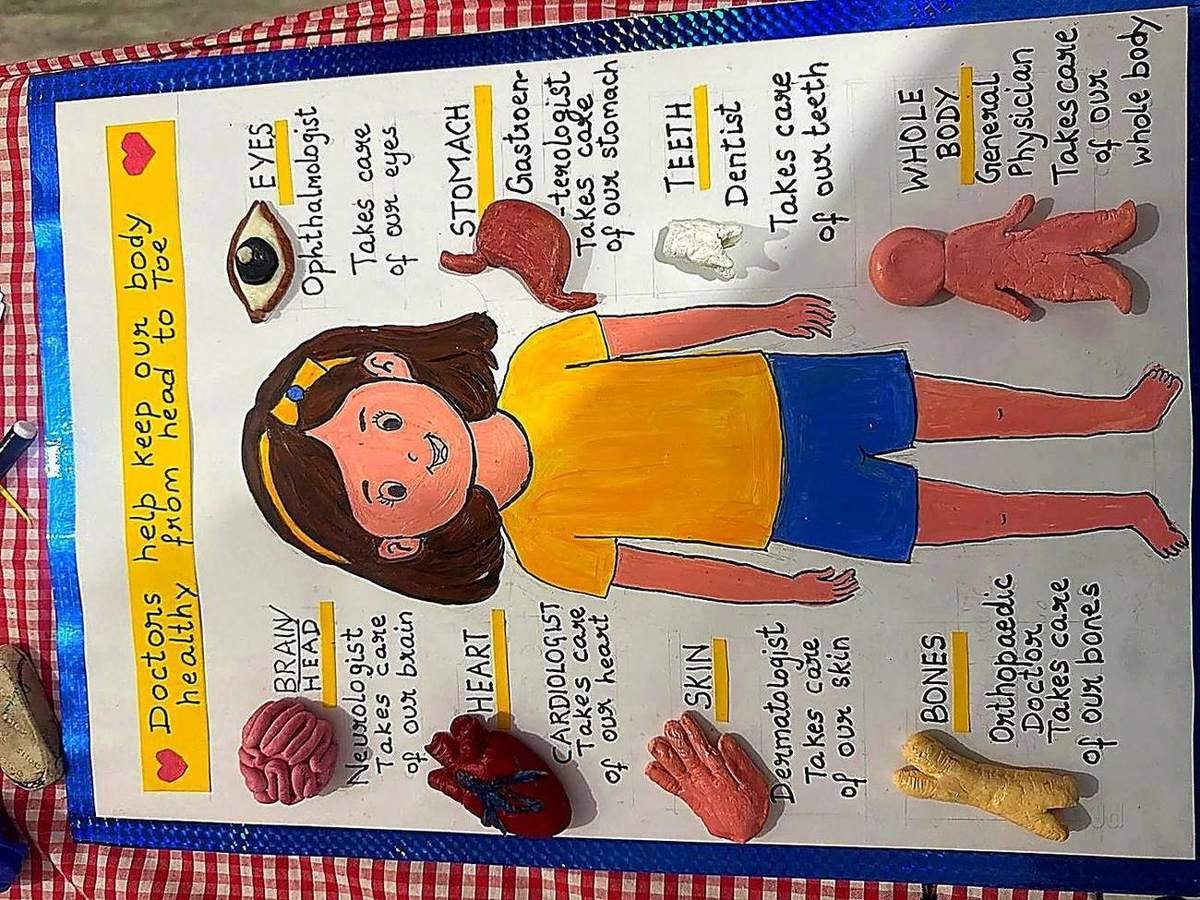 Doctors help keep our body
healthy from head to Toe
BRAIN/
HEAD
Neurologist
Takes care
of our brain
HEART
CARDIOLOGIST
Takes care
of our heart
SKIN
Dermatologist
Takes care
of our skin
BONES
Orthopaedic
Doctor
Takes care
of our bones
EYES
Ophthalmologist
Takes care
of our eyes
STOMACH
Gastroen
-terologist
Takes care
of our stomach
TEETH
Dentist
Takes care
of our teeth
WHOLE
BODY
General
Physician
Takes care
of our
whole body